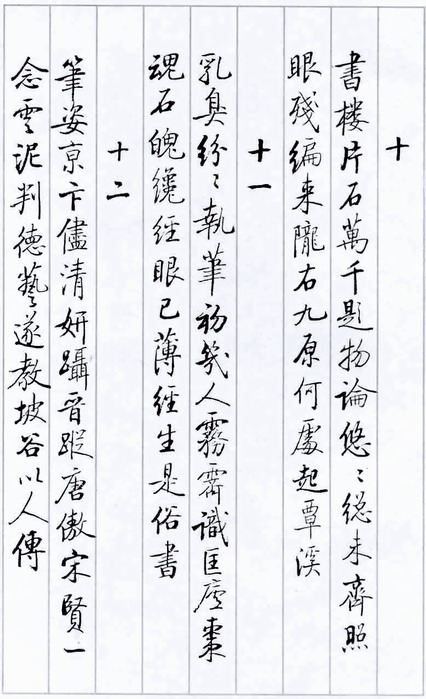 十
書樓片石萬千題物論悠〻總未齊照
眼殘編来隴右九原何處起覃溪
十一
乳臭紛〻執筆初幾人霧霽識匡廬棗
魂石魄纔經眼已薄經生是俗書
十二
筆姿京卞儘清妍躡晋蹤唐傲宋賢一
念雲泥判德藝遂教坡谷以人傳